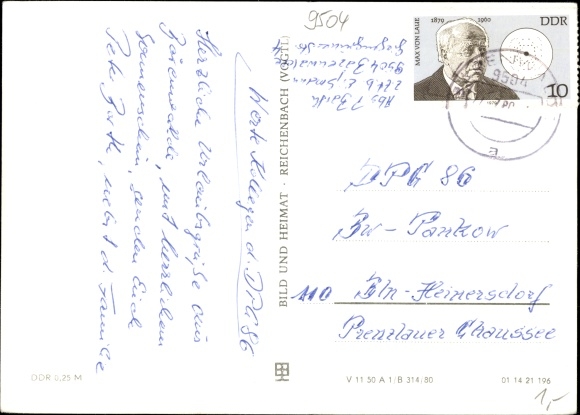 9504
Werte Kollegen d. DPG 86
Herzliche Urlaubsgrüße aus
Bärenwalde, mit herrlichem
Sonnenschein, senden Euch
Pete Barth, nebst d. Familie
BILD UND HEIMAT · REICHENBACH (VOGTL)
Abs. P. Barth
9504 Bärenwalde
MAX VON LAUE
1879 1960
DDR
10
9504
a
DPG 86
Bw-Pankow
110 Bln-Heinersdorf
Prenzlauer Chaussee
DDR 0,25 M
V 11 50 A 1/B 314/80
01 14 21 196
1,-